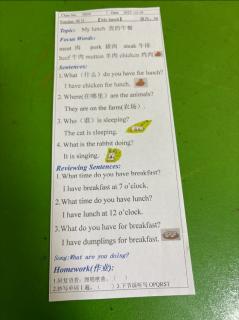 Class No. Date
【My lunch】
Topic: My lunch 我的午餐
Focus Words:
meat 肉 pork 猪肉 steak 牛排
beef 牛肉 mutton 羊肉 chicken 鸡肉
Sentences:
1.What（什么）do you have for lunch?
I have chicken for lunch.
2.Where(在哪里) are the animals?
They are on the farm(农场）.
3.Who（谁）is sleeping?
The cat is sleeping.
4.What is the rabbit doing?
It is singing.
Reviewing Sentences:
1.What time do you have breakfast?
I have breakfast at 7 o'clock.
2.What time do you have lunch?
I have lunch at 12 o'clock.
3.What do you have for breakfast?
I have dumplings for breakfast.
Song:What are you doing?
Homework(作业):
1.回复语音，跟唱歌曲。（ ）
2.抄写单词1遍。（ ）3.下节课听写 OPQRST